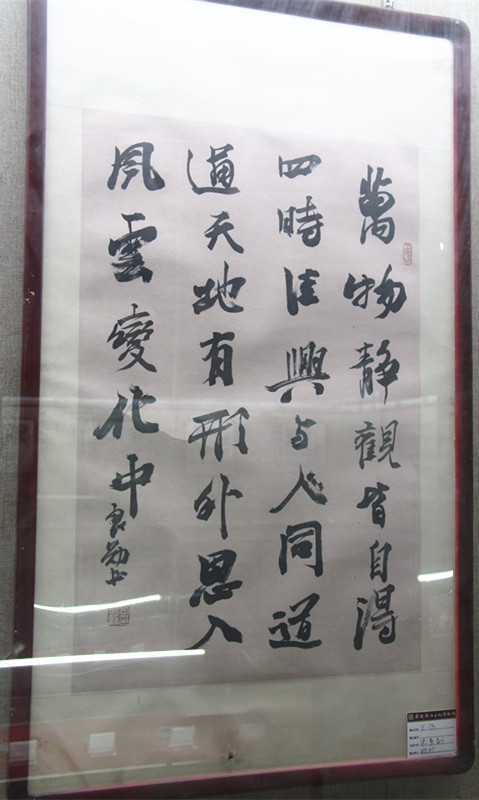 萬物静觀皆自得
四時佳興与人同道
通天地有形外思入
風雲變化中